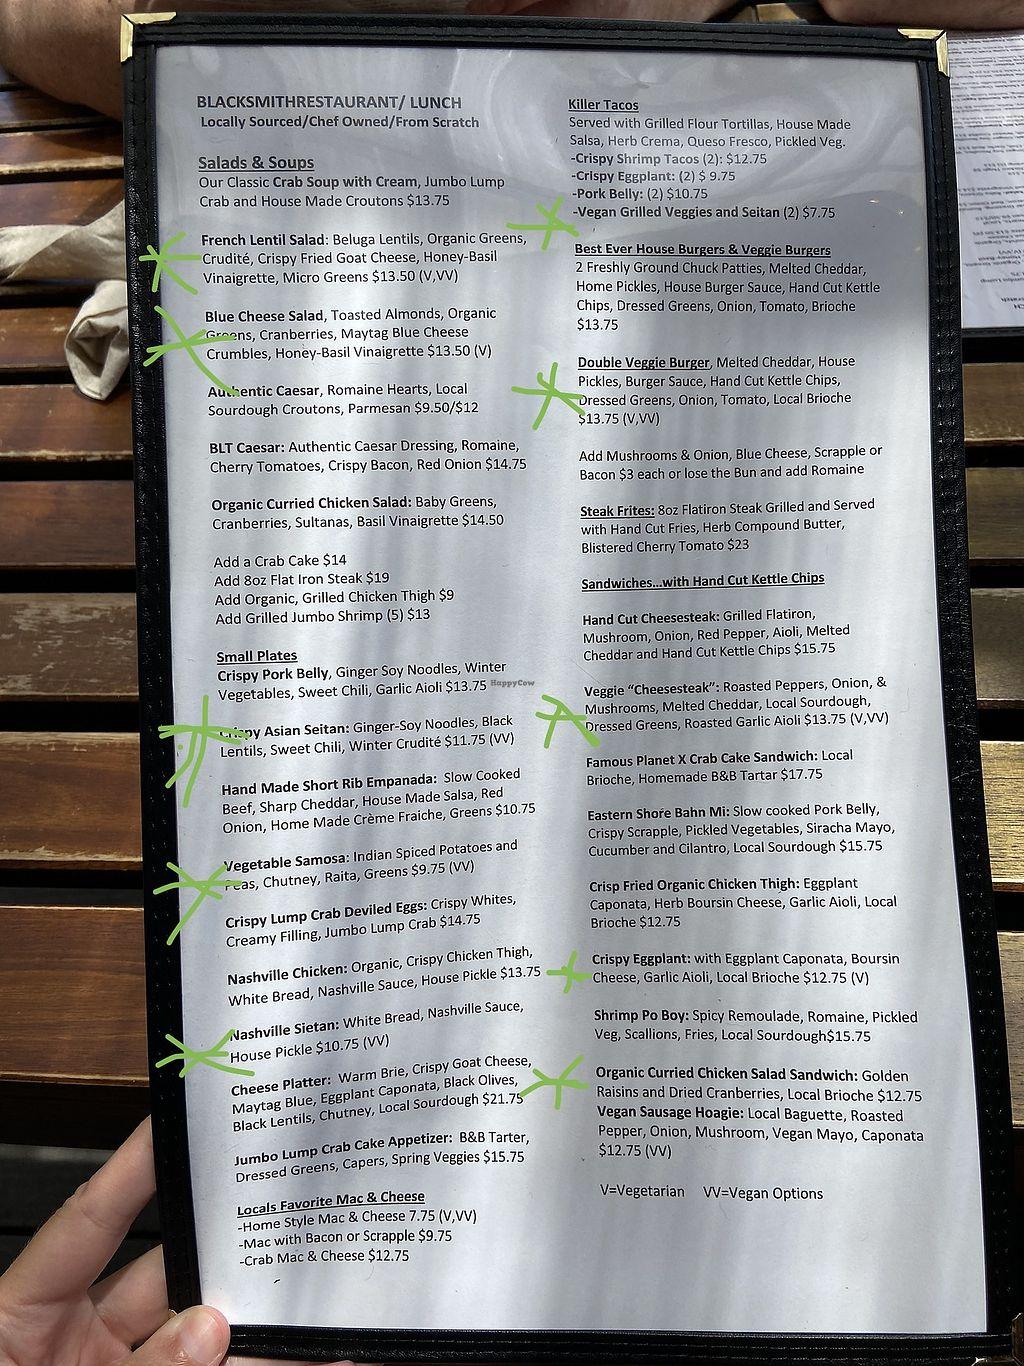 BLACKSMITHRESTAURANT/ LUNCH
Locally Sourced/Chef Owned/From Scratch
Salads & Soups
Our Classic Crab Soup with Cream, Jumbo Lump
Crab and House Made Croutons $13.75
French Lentil Salad: Beluga Lentils, Organic Greens,
Crudité, Crispy Fried Goat Cheese, Honey-Basil
Vinaigrette, Micro Greens $13.50 (V,VV)
Blue Cheese Salad, Toasted Almonds, Organic
Greens, Cranberries, Maytag Blue Cheese
Crumbles, Honey-Basil Vinaigrette $13.50 (V)
Authentic Caesar, Romaine Hearts, Local
Sourdough Croutons, Parmesan $9.50/$12
BLT Caesar: Authentic Caesar Dressing, Romaine,
Cherry Tomatoes, Crispy Bacon, Red Onion $14.75
Organic Curried Chicken Salad: Baby Greens,
Cranberries, Sultanas, Basil Vinaigrette $14.50
Add a Crab Cake $14
Add 8oz Flat Iron Steak $19
Add Organic, Grilled Chicken Thigh $9
Add Grilled Jumbo Shrimp (5) $13
Small Plates
Crispy Pork Belly, Ginger Soy Noodles, Winter
Vegetables, Sweet Chili, Garlic Aioli $13.75
Crispy Asian Seitan: Ginger-Soy Noodles, Black
Lentils, Sweet Chili, Winter Crudité $11.75 (VV)
Hand Made Short Rib Empanada: Slow Cooked
Beef, Sharp Cheddar, House Made Salsa, Red
Onion, Home Made Crème Fraiche, Greens $10.75
Vegetable Samosa: Indian Spiced Potatoes and
Peas, Chutney, Raita, Greens $9.75 (VV)
Crispy Lump Crab Deviled Eggs: Crispy Whites,
Creamy Filling, Jumbo Lump Crab $14.75
Nashville Chicken: Organic, Crispy Chicken Thigh,
White Bread, Nashville Sauce, House Pickle $13.75
Nashville Sietan: White Bread, Nashville Sauce,
House Pickle $10.75 (VV)
Cheese Platter: Warm Brie, Crispy Goat Cheese,
Maytag Blue, Eggplant Caponata, Black Olives,
Black Lentils, Chutney, Local Sourdough $21.75
Jumbo Lump Crab Cake Appetizer: B&B Tarter,
Dressed Greens, Capers, Spring Veggies $15.75
Locals Favorite Mac & Cheese
-Home Style Mac & Cheese 7.75 (V,VV)
-Mac with Bacon or Scrapple $9.75
-Crab Mac & Cheese $12.75
Killer Tacos
Served with Grilled Flour Tortillas, House Made
Salsa, Herb Crema, Queso Fresco, Pickled Veg.
-Crispy Shrimp Tacos (2): $12.75
-Crispy Eggplant: (2) $ 9.75
-Pork Belly: (2) $10.75
-Vegan Grilled Veggies and Seitan (2) $7.75
Best Ever House Burgers & Veggie Burgers
2 Freshly Ground Chuck Patties, Melted Cheddar,
Home Pickles, House Burger Sauce, Hand Cut Kettle
Chips, Dressed Greens, Onion, Tomato, Brioche
$13.75
Double Veggie Burger, Melted Cheddar, House
Pickles, Burger Sauce, Hand Cut Kettle Chips,
Dressed Greens, Onion, Tomato, Local Brioche
$13.75 (V,VV)
Add Mushrooms & Onion, Blue Cheese, Scrapple or
Bacon $3 each or lose the Bun and add Romaine
Steak Frites: 8oz Flatiron Steak Grilled and Served
with Hand Cut Fries, Herb Compound Butter,
Blistered Cherry Tomato $23
Sandwiches...with Hand Cut Kettle Chips
Hand Cut Cheesesteak: Grilled Flatiron,
Mushroom, Onion, Red Pepper, Aioli, Melted
Cheddar and Hand Cut Kettle Chips $15.75
Veggie "Cheesesteak": Roasted Peppers, Onion, &
Mushrooms, Melted Cheddar, Local Sourdough,
Dressed Greens, Roasted Garlic Aioli $13.75 (V,VV)
Famous Planet X Crab Cake Sandwich: Local
Brioche, Homemade B&B Tartar $17.75
Eastern Shore Bahn Mi: Slow cooked Pork Belly,
Crispy Scrapple, Pickled Vegetables, Siracha Mayo,
Cucumber and Cilantro, Local Sourdough $15.75
Crisp Fried Organic Chicken Thigh: Eggplant
Caponata, Herb Boursin Cheese, Garlic Aioli, Local
Brioche $12.75
Crispy Eggplant: with Eggplant Caponata, Boursin
Cheese, Garlic Aioli, Local Brioche $12.75 (V)
Shrimp Po Boy: Spicy Remoulade, Romaine, Pickled
Veg, Scallions, Fries, Local Sourdough$15.75
Organic Curried Chicken Salad Sandwich: Golden
Raisins and Dried Cranberries, Local Brioche $12.75
Vegan Sausage Hoagie: Local Baguette, Roasted
Pepper, Onion, Mushroom, Vegan Mayo, Caponata
$12.75 (VV)
V=Vegetarian VV=Vegan Options
HappyCow